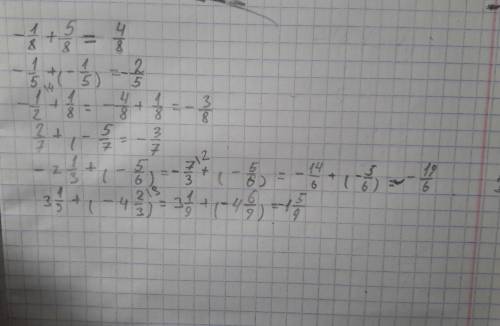 -1/8 + 5/8 = 4/8
-1/5 + (-1/5) = -2/5
-1/2\4 + 1/8 = -4/8 + 1/8 = -3/8
2/7 + (-5/7 = -3/7
-2 1/3 + (-5/6) = -7/3\2 + (-5/6) = -14/6 + (-5/6) = -19/6
3 1/9 + (-4 2/3\3) = 3 1/9 + (-4 6/9) = -1 5/9